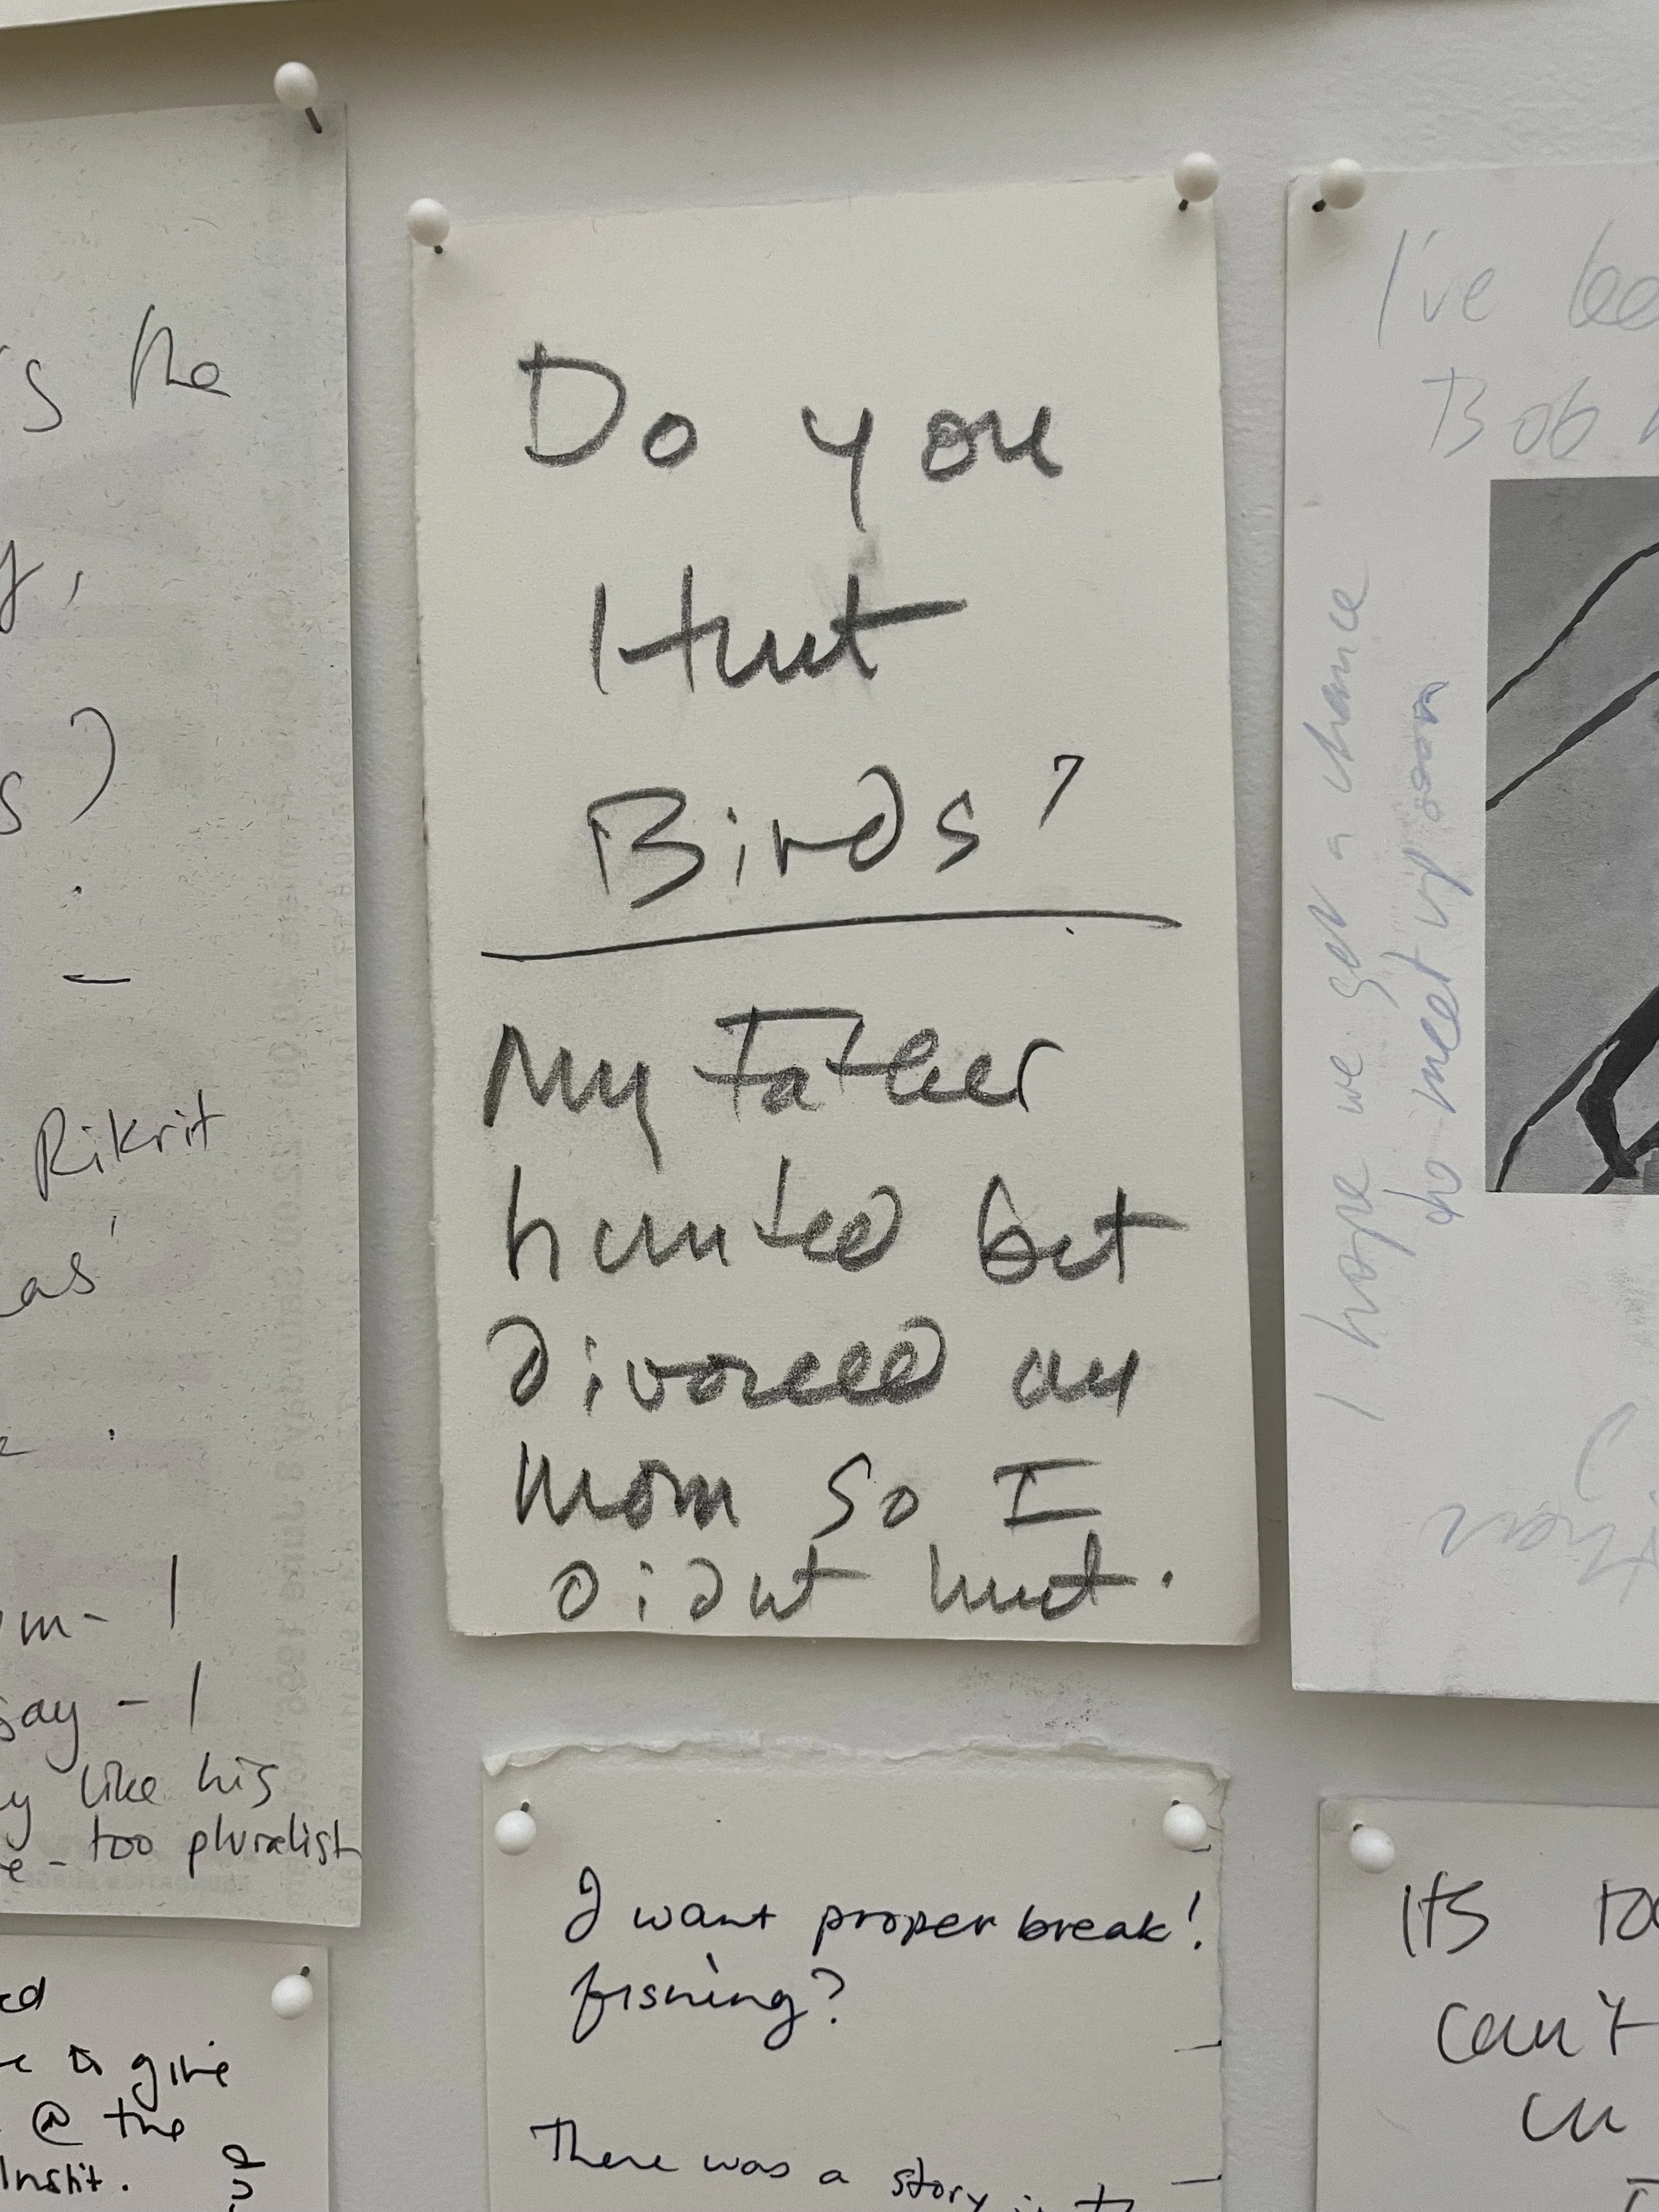 Do you
Hunt
Birds?
My Father
hunted but
divorced my
mom so I
didnt hunt.
I want proper break!
fishing?
There was a story
the
Rikrit
as
say - I
like his
too pluralist
give
@ the
Instit.
I've
Bob
I hope we get a chance
to meet up soon
Its
can't